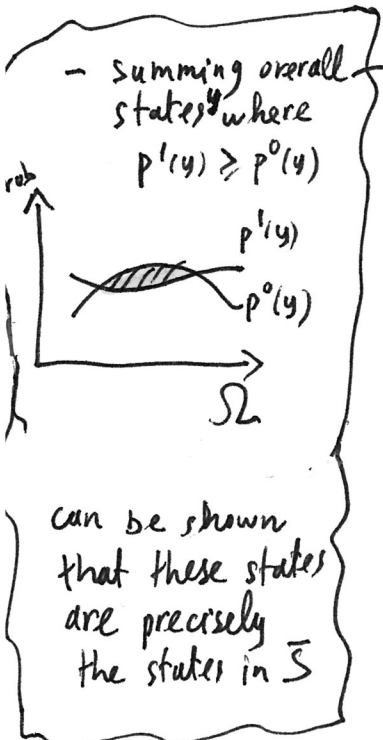 - summing overall
states y where
p'(y) ≥ p⁰(y)
rob
p'(y)
p⁰(y)
Ω
can be shown
that these states
are precisely
the states in S̅